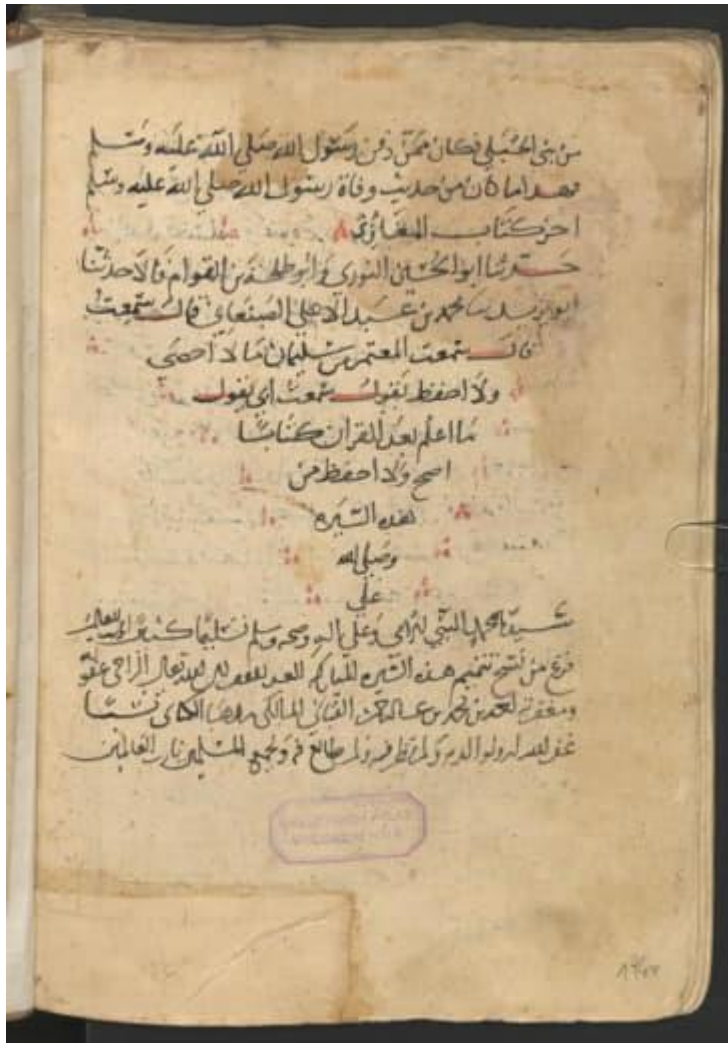 من بنى الحبلي فكان ممن دفن رسول الله صلي الله عليه وسلم
فهذا ما كان من حديث وفاة رسول الله صلي الله عليه وسلم
اخر كتاب المغازي
حدثنا ابو الحسين النوري وابو طلحة بن القوام قالا حدثنا
ابو يزيد محمد بن عبد الاعلي الصنعاني قال سمعت
قال سمعت المعتمر بن سليمان ما لا احصي
ولا احفظ يقول سمعت ابي يقول
ما اعلم بعد القران كتابا
اصح ولا احفظ من
هذه السيره
وصلي الله
علي
سيدنا محمد النبي الامي وعلي اله وصحبه وسلم تسليما كثيرا
فرغ من نسخ تتميم هذه السيره المباركه العبد الفقير الي الله تعالي الراجي عفو
ومغفرته محمد بن محمد بن عبد الرحمن المالكي
غفر الله له ولوالديه ولمن نظر فيه ولمن طالع فيه ولجميع المسلمين يا رب العالمين